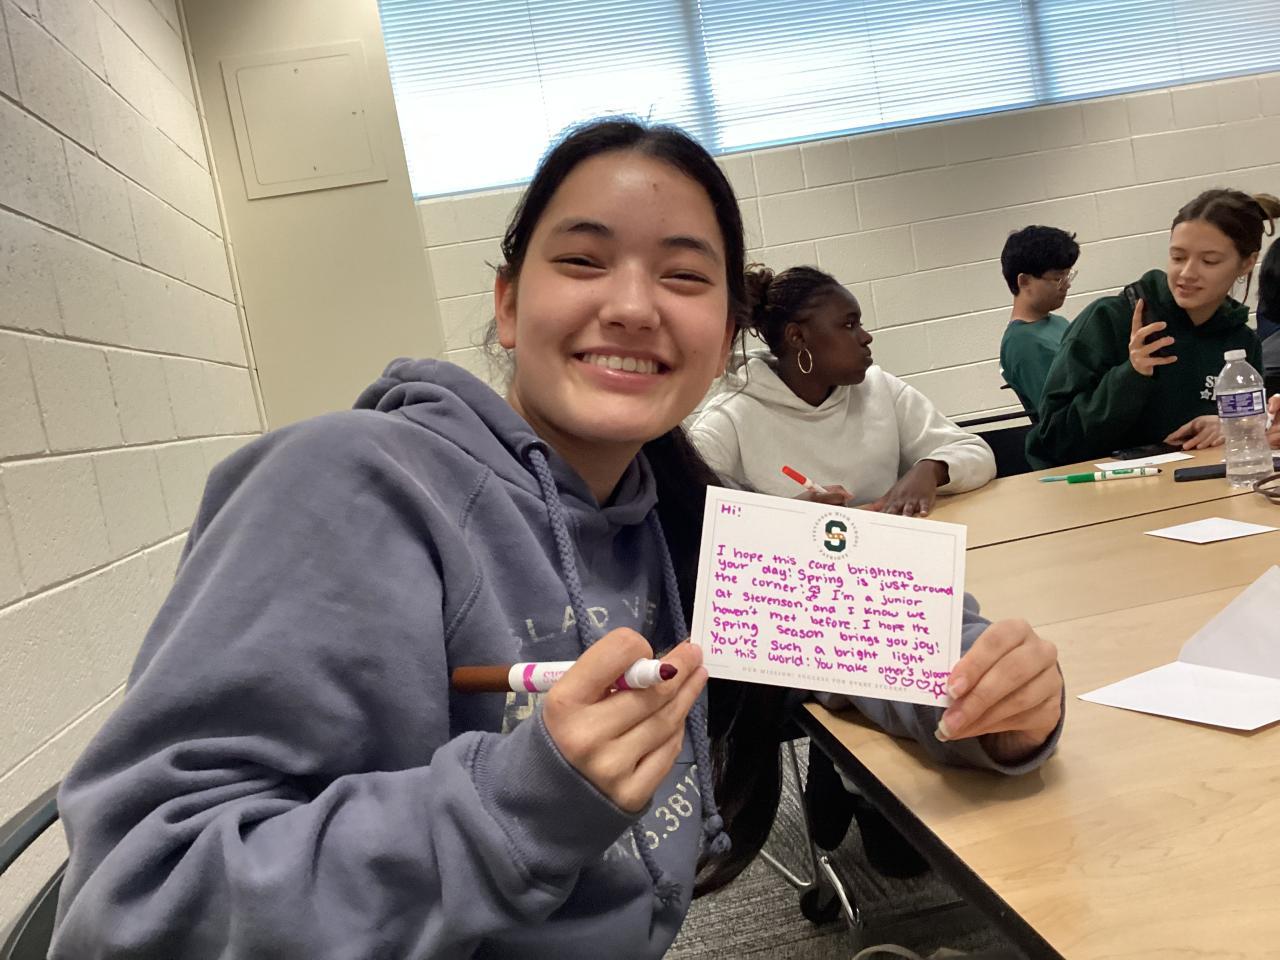 Hi!
STEVENSON HIGH SCHOOL
S
PATRIOTS
I hope this card brightens
your day! Spring is just around
the corner! I'm a junior
at Stevenson, and I know we
haven't met before. I hope the
Spring season brings you joy!
You're such a bright light
in this world! You make other's bloom
OUR MISSION: SUCCESS FOR EVERY STUDENT